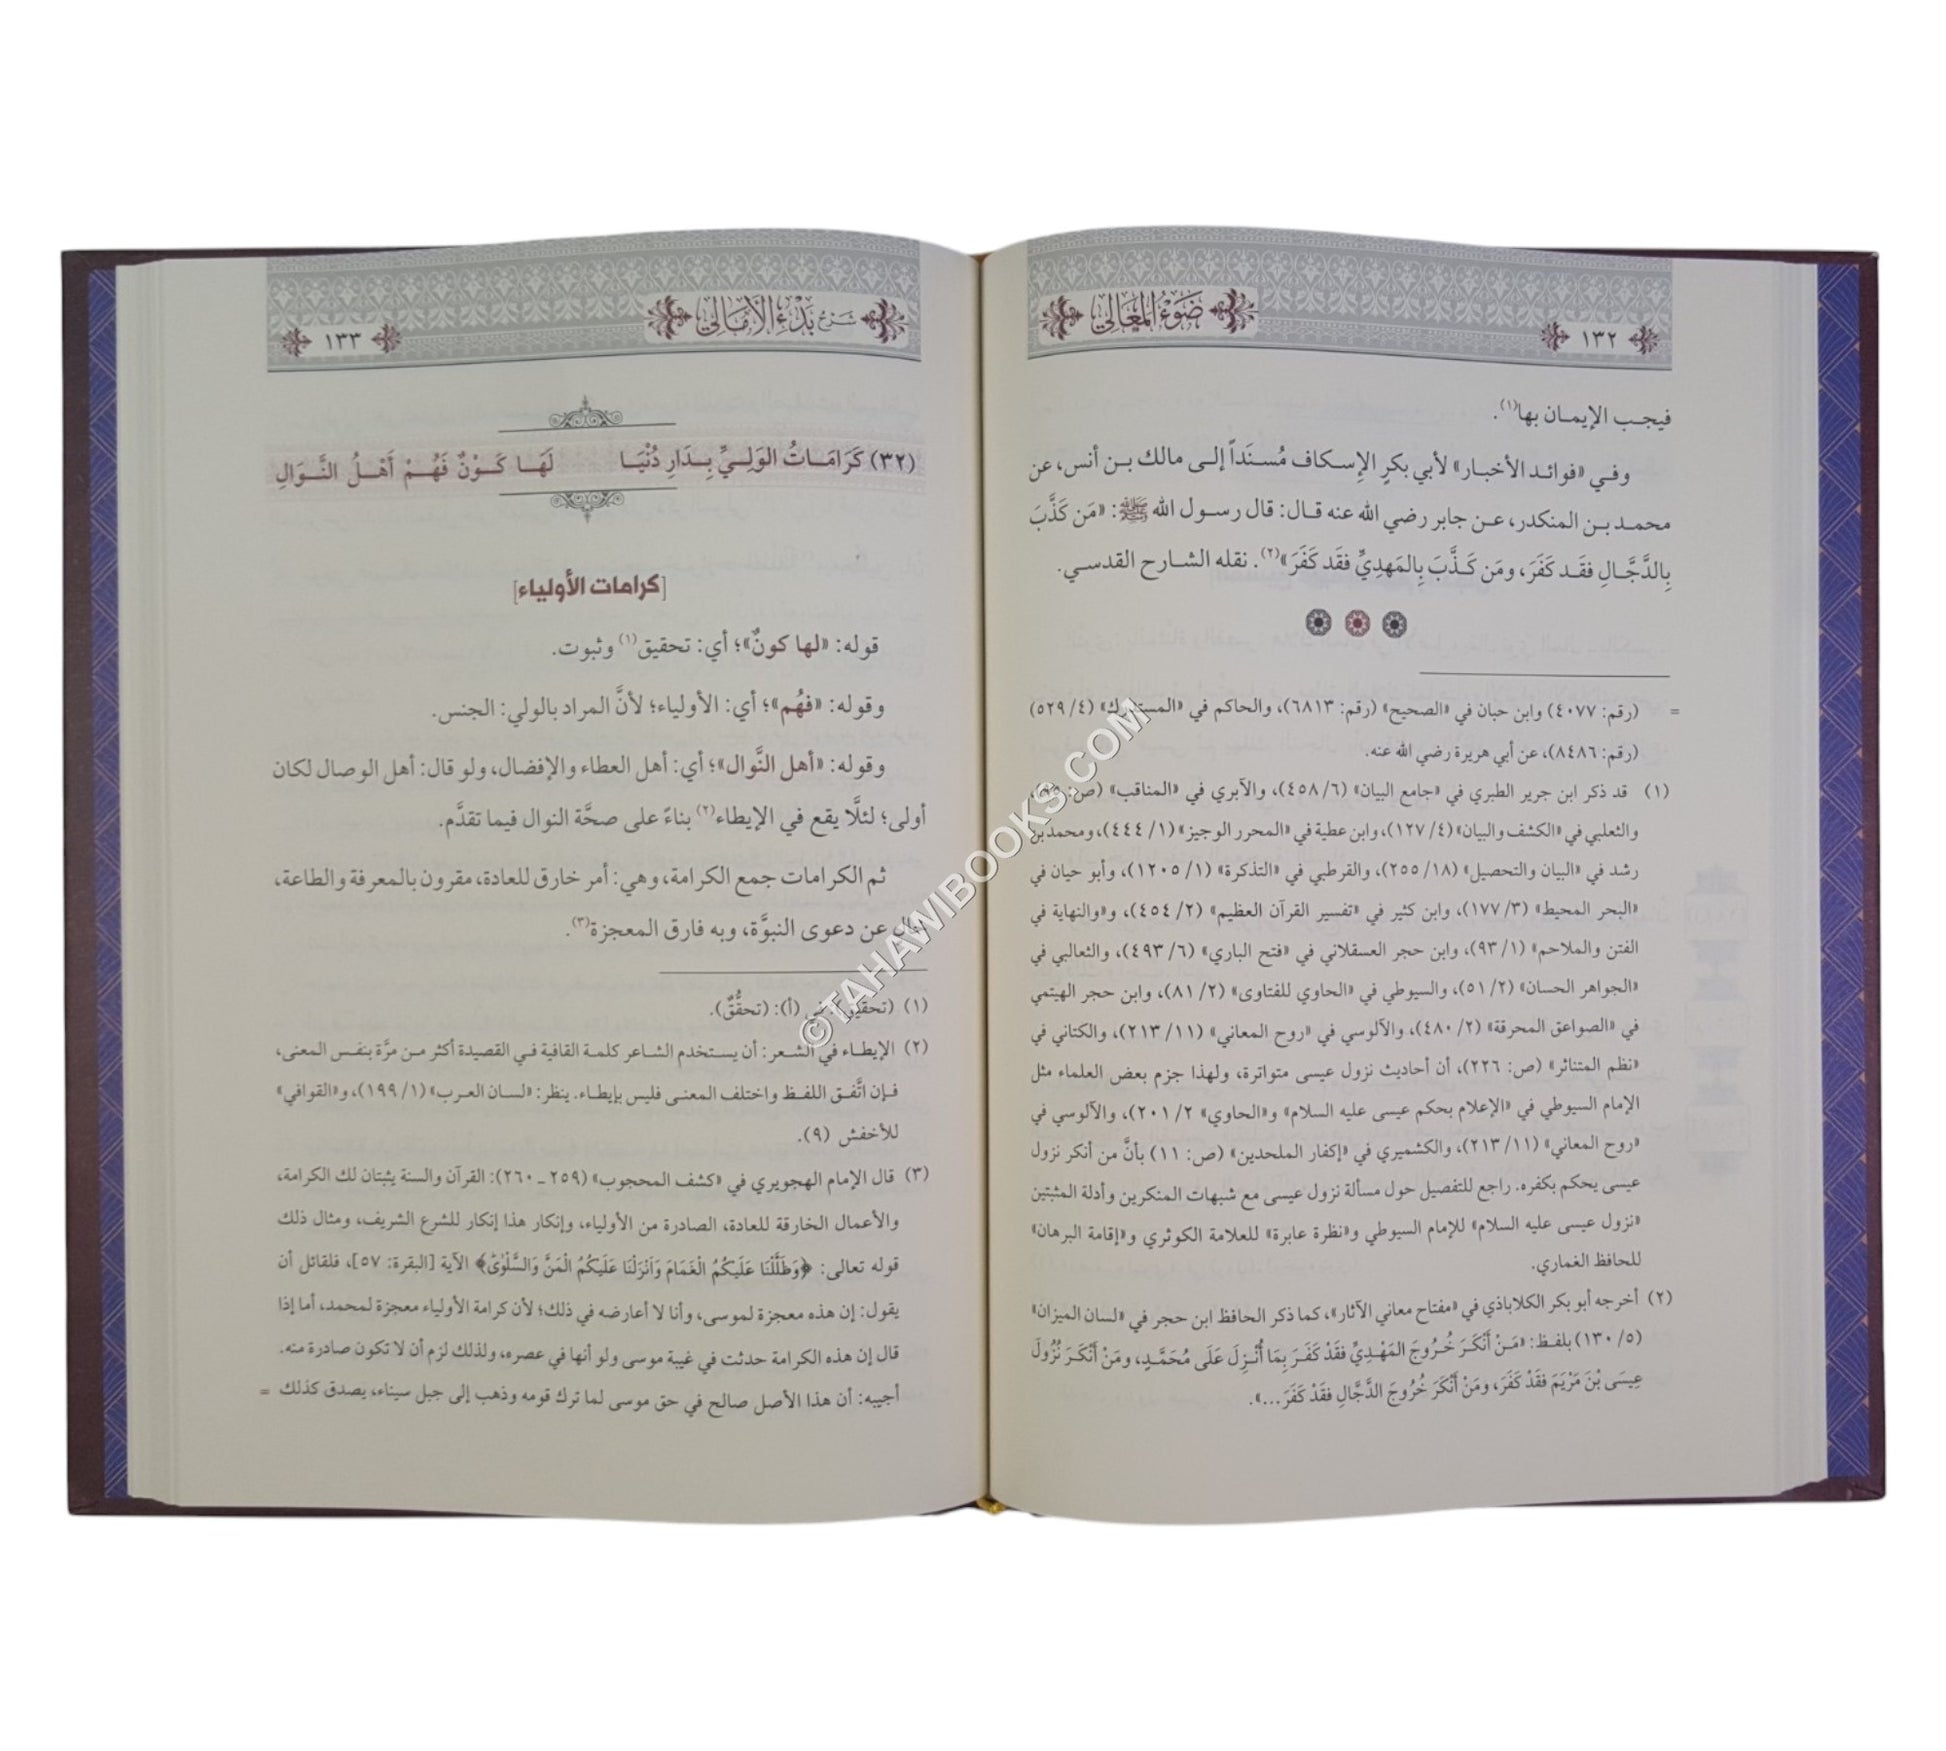 ١٣٢
ضَوْءُ المَعَالِي
فيجب الإيمان بها(١).
وفي «فوائد الأخبار» لأبي بكرٍ الإسكاف مُسنَداً إلى مالك بن أنس، عن
محمد بن المنكدر، عن جابر رضي الله عنه قال: قال رسول الله ﷺ: «مَن كَذَّبَ
بِالدَّجَّالِ فقَد كَفَرَ، ومَن كَذَّبَ بِالمَهدِيِّ فقَد كَفَرَ»(٢). نقله الشارح القدسي.
= (رقم: ٤٠٧٧) وابن حبان في «الصحيح» (رقم: ٦٨١٣)، والحاكم في «المستدرك» (٤/ ٥٢٩)
(رقم: ٨٤٨٦)، عن أبي هريرة رضي الله عنه.
(١) قد ذكر ابن جرير الطبري في «جامع البيان» (٦/ ٤٥٨)، والآبري في «المناقب» (ص:
والثعلبي في «الكشف والبيان» (٤/ ١٢٧)، وابن عطية في «المحرر الوجيز» (١/ ٤٤٤)، ومحمد بن
رشد في «البيان والتحصيل» (١٨/ ٢٥٥)، والقرطبي في «التذكرة» (١/ ١٢٠٥)، وأبو حيان في
«البحر المحيط» (٣/ ١٧٧)، وابن كثير في «تفسير القرآن العظيم» (٢/ ٤٥٤)، و«والنهاية في
الفتن والملاحم» (١/ ٩٣)، وابن حجر العسقلاني في «فتح الباري» (٦/ ٤٩٣)، والثعالبي في
«الجواهر الحسان» (٢/ ٥١)، والسيوطي في «الحاوي للفتاوى» (٢/ ٨١)، وابن حجر الهيتمي
في «الصواعق المحرقة» (٢/ ٤٨٠)، والآلوسي في «روح المعاني» (١١/ ٢١٣)، والكتاني في
«نظم المتناثر» (ص: ٢٢٦)، أن أحاديث نزول عيسى متواترة، ولهذا جزم بعض العلماء مثل
الإمام السيوطي في «الإعلام بحكم عيسى عليه السلام» و«الحاوي» ٢/ ٢٠١)، والآلوسي في
«روح المعاني» (١١/ ٢١٣)، والكشميري في «إكفار الملحدين» (ص: ١١) بأنَّ من أنكر نزول
عيسى يحكم بكفره. راجع للتفصيل حول مسألة نزول عيسى مع شبهات المنكرين وأدلة المثبتين
«نزول عيسى عليه السلام» للإمام السيوطي و«نظرة عابرة» للعلامة الكوثري و«إقامة البرهان»
للحافظ الغماري.
(٢) أخرجه أبو بكر الكلاباذي في «مفتاح معاني الآثار»، كما ذكر الحافظ ابن حجر في «لسان الميزان»
(٥/ ١٣٠) بلفظ: «مَنْ أَنْكَرَ خُرُوجَ المَهْدِيِّ فقَدْ كَفَرَ بِمَا أُنْزِلَ عَلَى مُحَمَّدٍ، ومَنْ أَنْكَرَ نُزُولَ
عِيسَى بْنَ مَرْيَمَ فقَدْ كَفَرَ، ومَنْ أَنْكَرَ خُرُوجَ الدَّجَّالِ فقَدْ كَفَرَ...».
شَرْحُ بَدْءِ الأَمَالِي
١٣٣
(٣٢) كَرَامَـاتُ الوَلِـيِّ بِـدَارِ دُنْيَـا لَهَـا كَـوْنٌ فَهُـمْ أَهْـلُ النَّـوَالِ
[كرامات الأولياء]
قوله: «لها كونٌ»؛ أي: تحقيق(١) وثبوت.
وقوله: «فهُم»؛ أي: الأولياء؛ لأنَّ المراد بالولي: الجنس.
وقوله: «أهل النَّوال»؛ أي: أهل العطاء والإفضال، ولو قال: أهل الوصال لكان
أولى؛ لئلَّا يقع في الإيطاء(٢) بناءً على صحَّة النوال فيما تقدَّم.
ثم الكرامات جمع الكرامة، وهي: أمر خارق للعادة، مقرون بالمعرفة والطاعة،
خالٍ عن دعوى النبوَّة، وبه فارق المعجزة(٣).
(١) (تحقيق) في (أ): (تحقُّقٌ).
(٢) الإيطاء في الشعر: أن يستخدم الشاعر كلمة القافية في القصيدة أكثر من مرَّة بنفس المعنى،
فإن اتَّفق اللفظ واختلف المعنى فليس بإيطاء. ينظر: «لسان العرب» (١/ ١٩٩)، و«القوافي»
للأخفش (٩).
(٣) قال الإمام الهجويري في «كشف المحجوب» (٢٥٩ـ ٢٦٠): القرآن والسنة يثبتان لك الكرامة،
والأعمال الخارقة للعادة، الصادرة من الأولياء، وإنكار هذا إنكار للشرع الشريف، ومثال ذلك
قوله تعالى: ﴿وَظَلَّلْنَا عَلَيْكُمُ الْغَمَامَ وَأَنْزَلْنَا عَلَيْكُمُ الْمَنَّ وَالسَّلْوَىٰ﴾ الآية [البقرة: ٥٧]، فلقائل أن
يقول: إن هذه معجزة لموسى، وأنا لا أعارضه في ذلك؛ لأن كرامة الأولياء معجزة لمحمد، أما إذا
قال إن هذه الكرامة حدثت في غيبة موسى ولو أنها في عصره، ولذلك لزم أن لا تكون صادرة منه.
أجيبه: أن هذا الأصل صالح في حق موسى لما ترك قومه وذهب إلى جبل سيناء، يصدق كذلك =
©TAHAWIBOOKS.COM